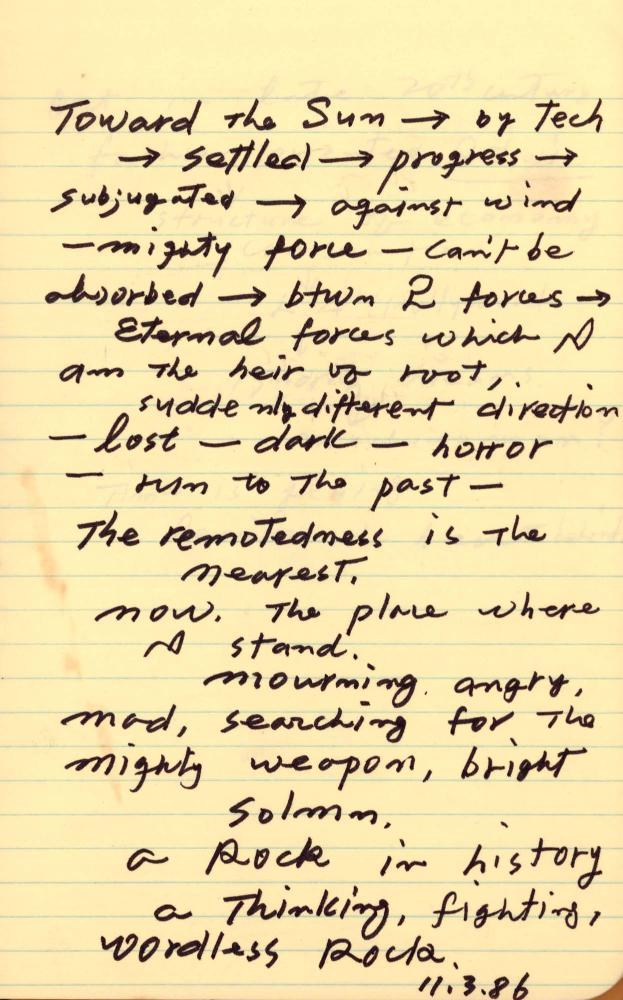 Toward the Sun → by Tech
→ settled → progress →
subjugated → against wind
— mighty force — can't be
absorbed → btwn 2 forces →
Eternal forces which I
am the heir of root,
suddenly different direction
— lost — dark — horror
— run to the past —
The remotedness is the
nearest.
now. The place where
I stand.
mourning. angry,
mad, searching for the
mighty weapon, bright
solmn.
a Rock in history
a Thinking, fighting,
wordless Rock.
11.3.86